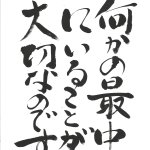 何かの最中
にいることが
大切なのです